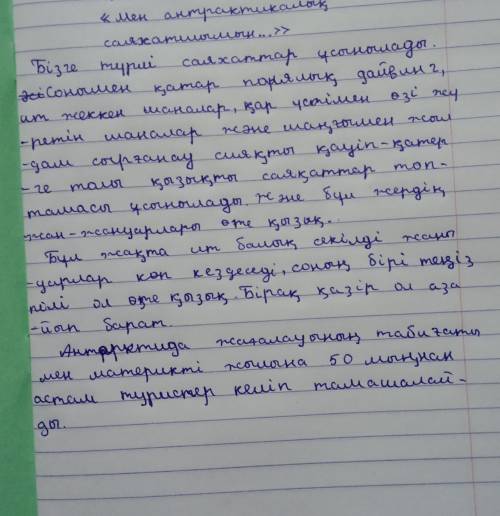 «Мен антрактикалық
саяхатшымын...»
Бізге түрлі саяхаттар ұсынылады.
Сонымен қатар порялық дайвинг,
ит жеккен шаналар, қар үстімен өзі жү
-ретін шаналар және шаңғымен жыл
-дам сырғанау сияқты қауіп-қатер
-ге толы қызықты саяқаттар топ-
тамасы ұсынылады және бұл жердің
жан-жануарлары өте қызық..
Бұл жақта ит балық секілді жаны
-уарлар көп кездеседі, соның бірі теңіз
пілі ол өте қызық. Бірақ қазір ол аза
-йып барат.
Антарктида жағалауының табиғаты
мен материкті жылына 50 мыңнан
астам туристер келіп тамашалай-
ды.